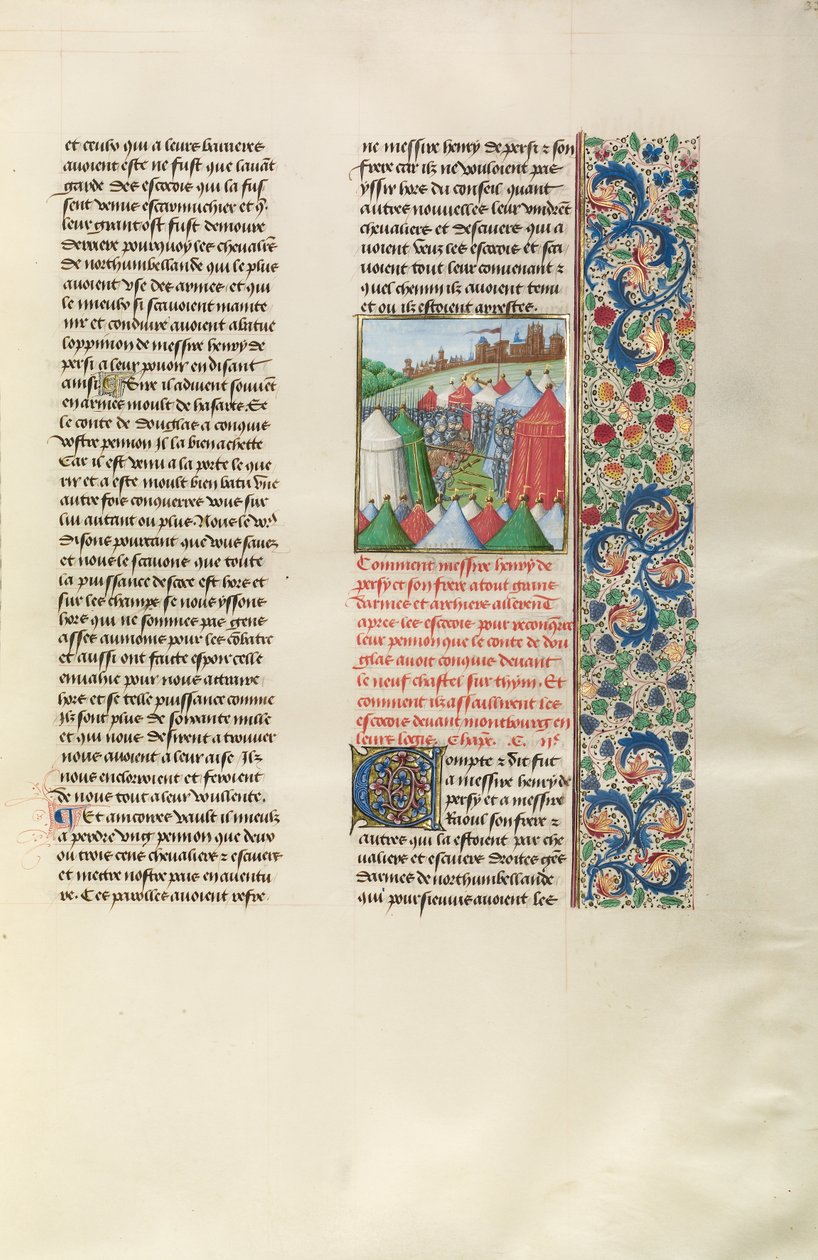 et ceulx qui a leurs barrieres
avoient este ne fust que lavāt
garde des escocois qui la fus
sent venus escarmuchier et q̄
leur grant ost fust demoure
derriere pourquoy les chevalr̄s
de northumbellande qui le plus
avoient vse des armes et qui
le mieulx si scavoient mainte
nir et conduire avoient abatue
loppinion de messire henry de
persi a leur povoir en disant
ainsi Sire il advient souvēt
en armes moult de hasars Se
le conte de douglas a conquis
vostre pennon Il la bien achette
Car il est venu a la porte le que
rir et a este moult bien batu vne
autre fois conquerres vous sur
lui autant ou plus. Nous le voꝰ
disons pourtant que vous savez
et nous le scavons que toute
la puissance descoce est hors et
sur les champs se nous yssons
hors qui ne sommes pas gens
asses au moins pour les cōbatre
et aussi ont faicte espoir celle
envahie pour nous attraire
hors et se telle puissance comme
Ilz sont plus de soixante mille
et qui nous desirent a trouver
nous avoient a leur aise Ilz
nous encloroient et feroient
de nous tout a leur voullente.
Et aincores vault il mieulz
a perdre vng pennon que deux
ou trois cens chevaliers ⁊ escuiers
et mettre nostre pais en aventu
re. Ces parolles avoient refre
ne messire henry de persi ⁊ son
frere car ilz ne vouloient pas
yssir hors du conseil quant
autres nouvelles leur vindrēt
chevaliers et descuiers qui a
voient veuz les escocois et sca
voient tout leur convenant ⁊
quel chemin ilz avoient tenu
et ou ilz estoient arrestes.
Comment messire henry de
persy et son frere a tout grans
darmes et archiers allerent
apres les escocois pour reconq̄rre
leur pennon que le conte de dou
glas avoit conquis devant
le neuf chastel sur thym. Et
comment ilz assaillirent les
escocois devant montbourg en
leurs logis. Chapr̄e. C. iiᵉ
Compte ⁊ dit fut
a messire henry de
persy et a messire
Raoul son frere ⁊
autres qui la estoient par che
valiers et escuiers droites gēs
darmes de northumbellande
qui poursievuis avoient les